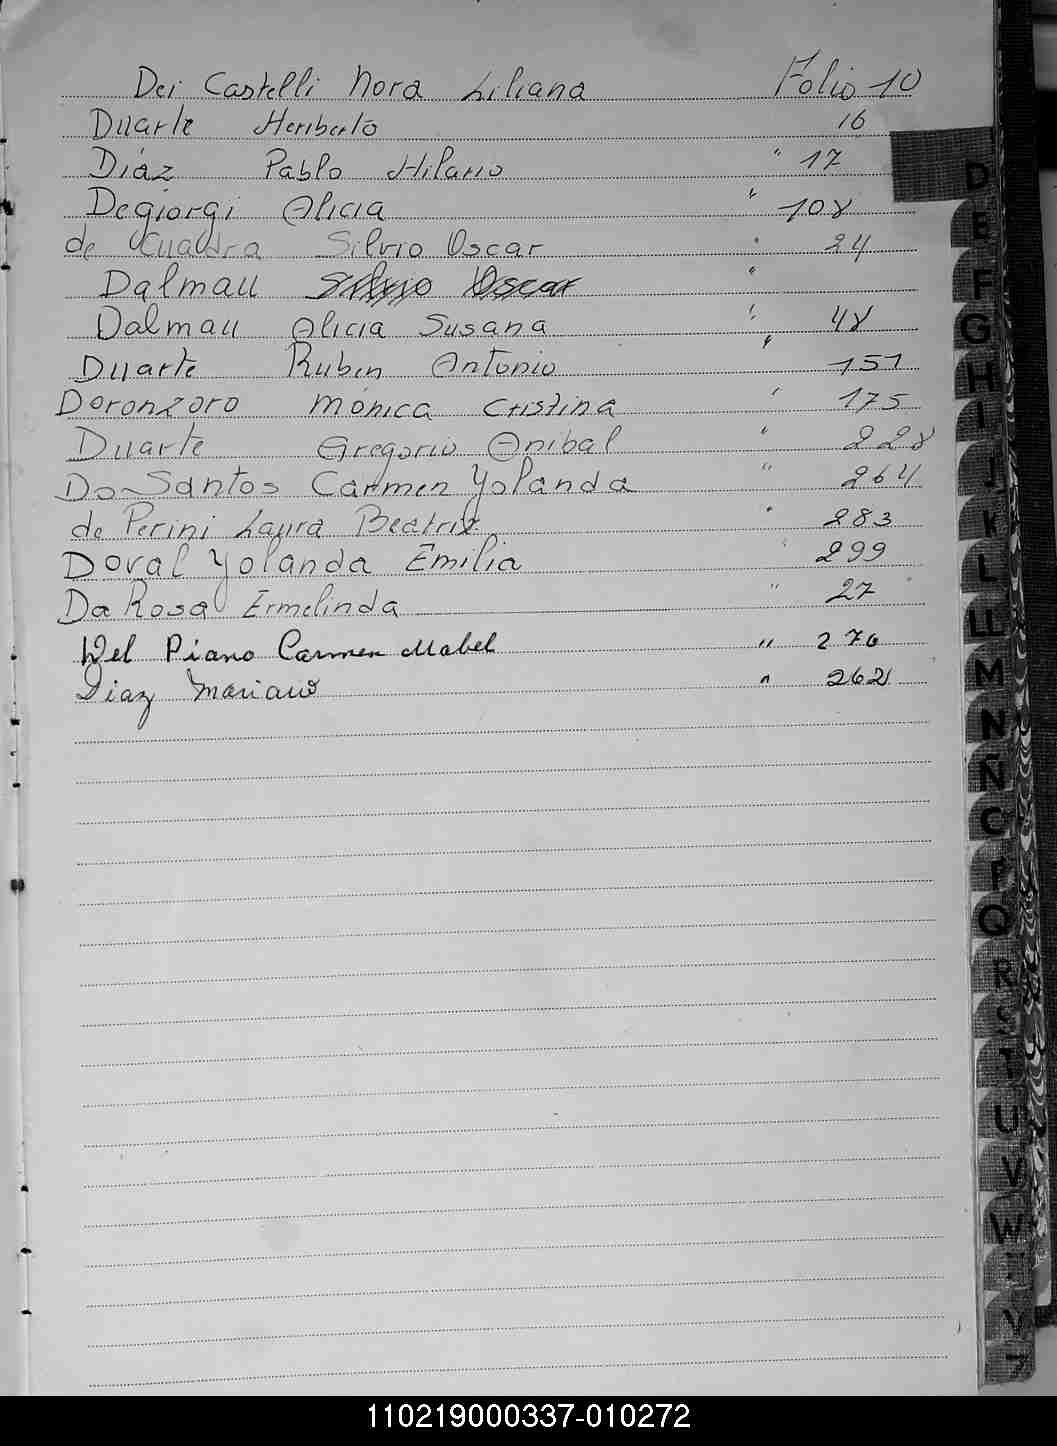 Dei Castelli Nora Liliana Folio 10
Duarte Heriberto 16
Diáz Pablo Hilario " 17
Degiorgi Alicia " 108
de Cuadra Silvio Oscar " 24
Dalmau Silvio Oscar "
Dalmau Alicia Susana " 48
Duarte Ruben Antonio " 151
Doronzoro Mónica Cristina " 175
Duarte Gregorio Anibal " 228
Do Santos Carmen Yolanda " 264
de Perini Laura Beatriz " 283
Doval Yolanda Emilia " 299
Da Rosa Ermelinda " 27
Del Piano Carmen Mabel " 270
Diaz Mariano " 262
D
E
F
G
H
I
J
K
L
LL
M
N
Ñ
O
P
Q
R
S
T
U
V
W
Y
Z
110219000337-010272